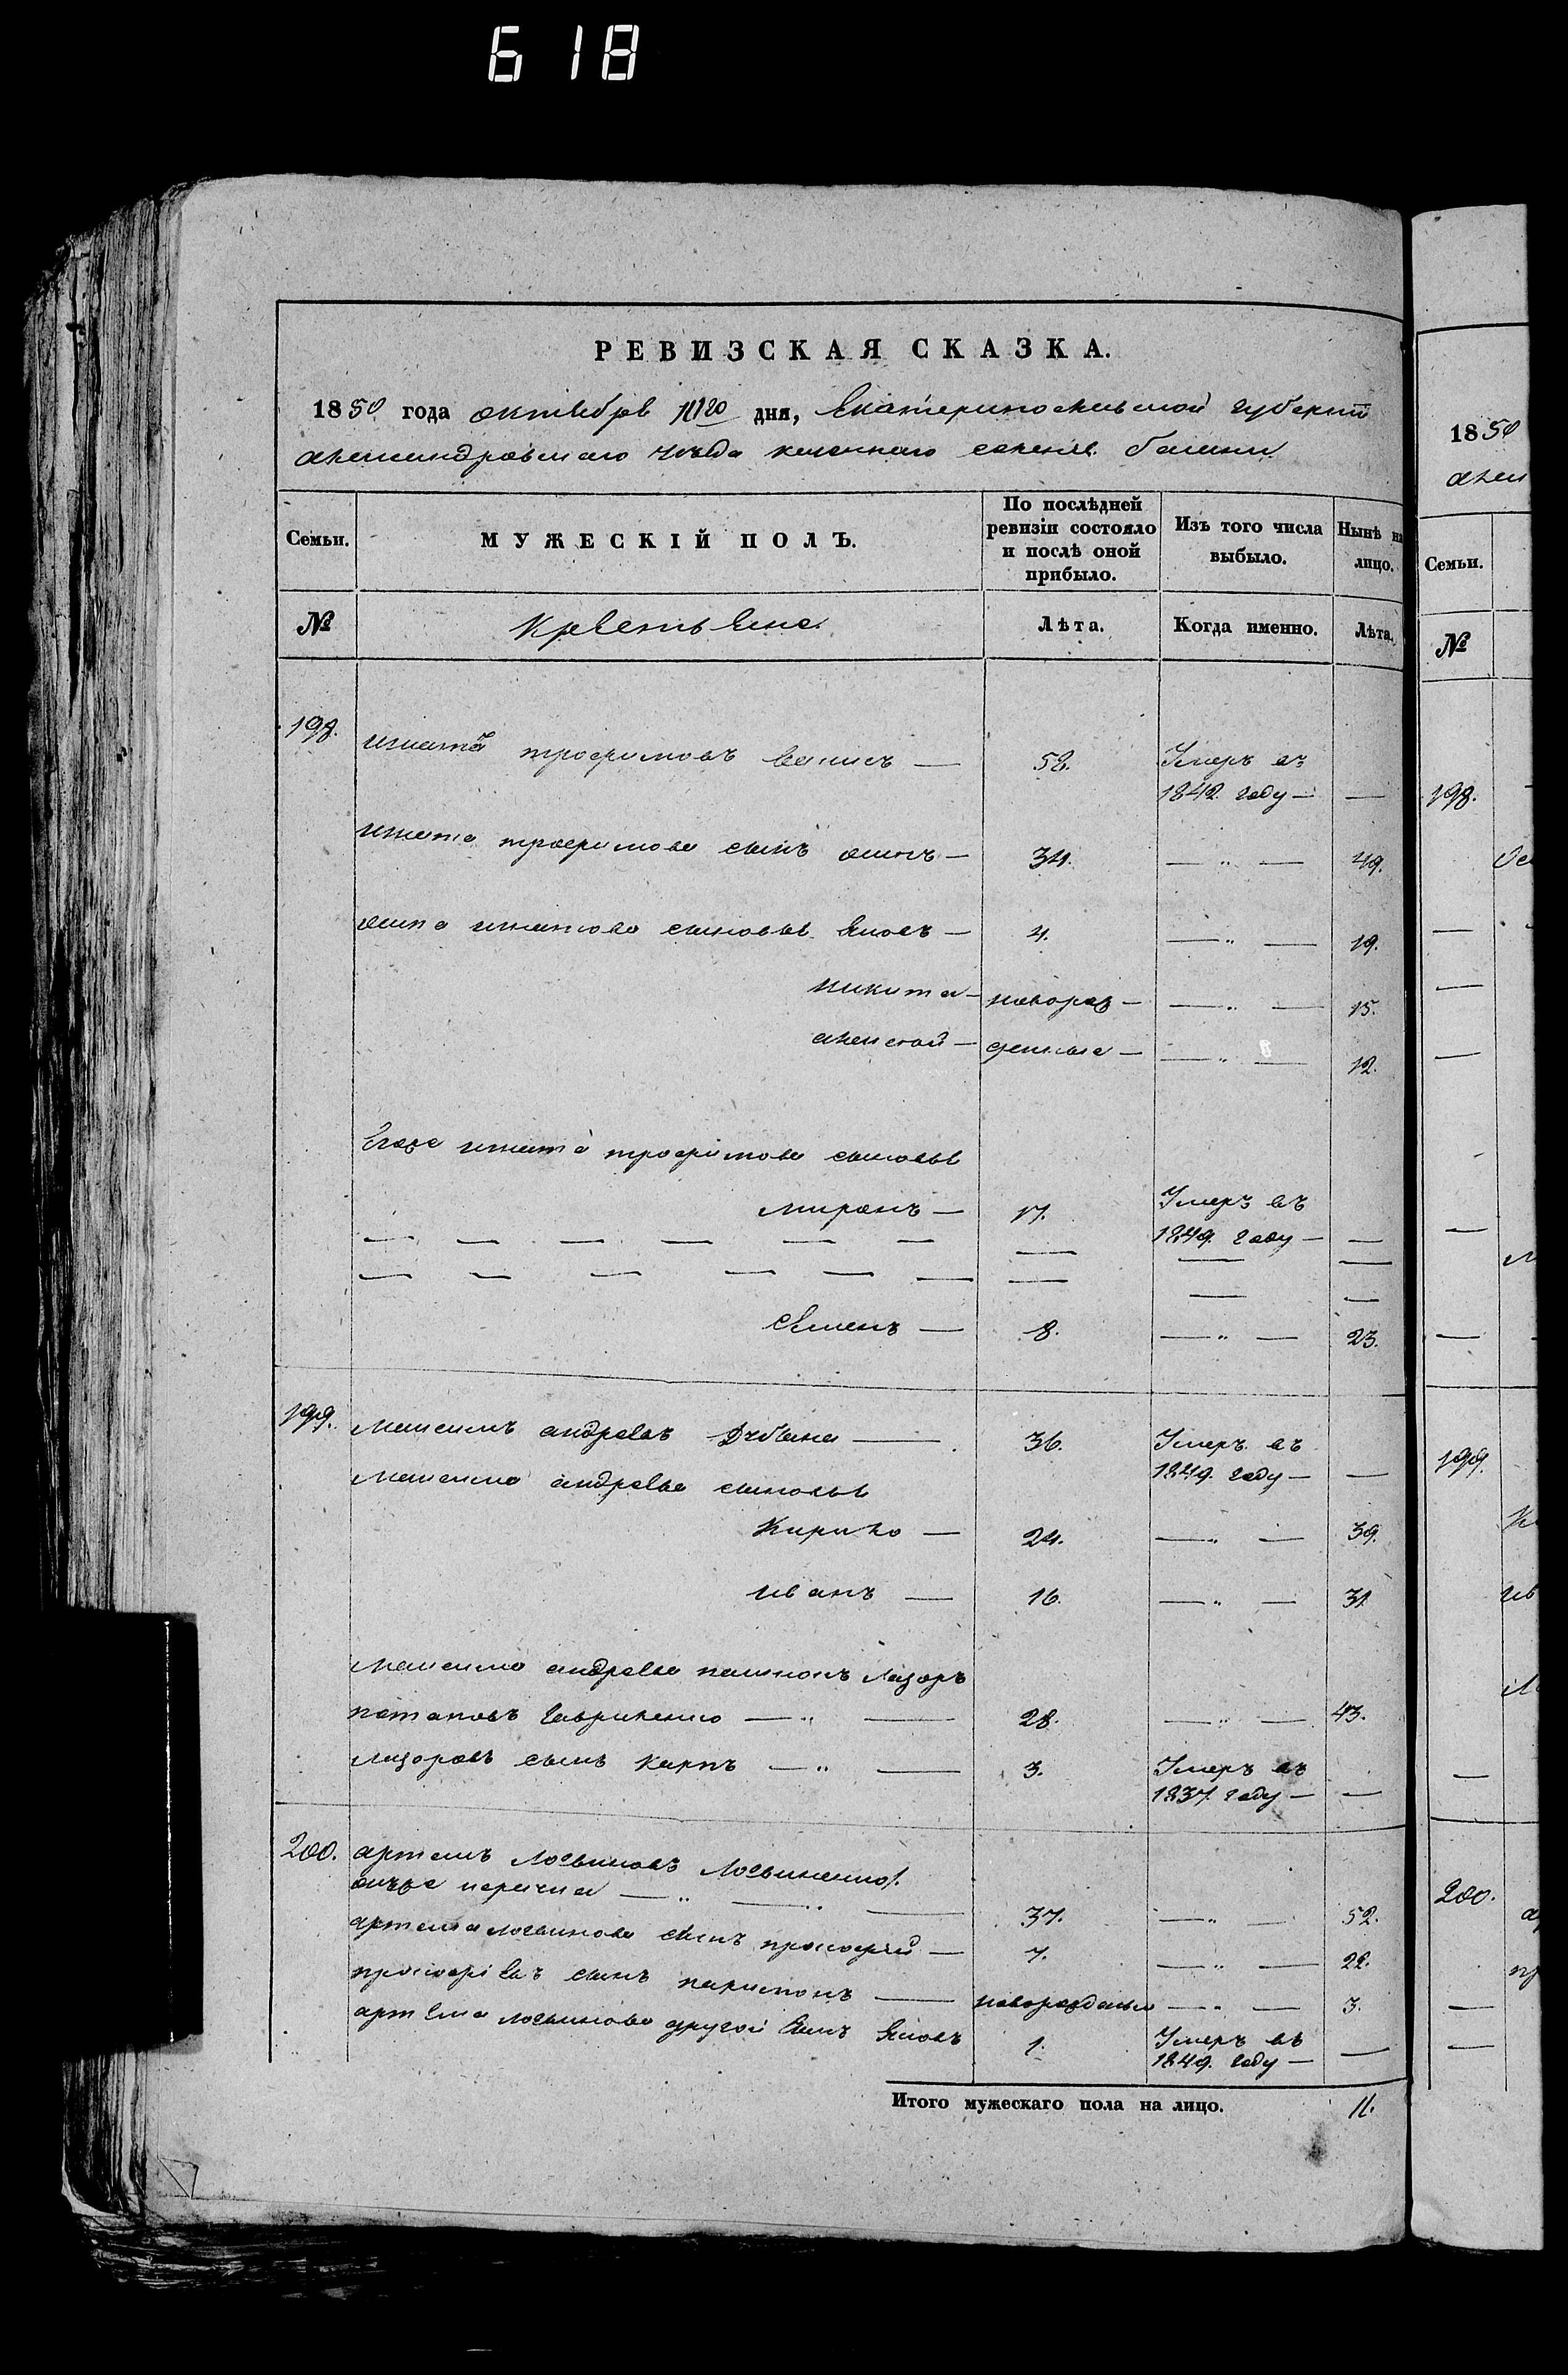 618
РЕВИЗСКАЯ СКАЗКА.
1850 года октября дня, Екатеринославской губернии
александровскаго уѣзда казеннаго селенія
Семьи.
МУЖЕСКІЙ ПОЛЪ.
По послѣдней ревизіи состояло и послѣ оной прибыло.
Изъ того числа выбыло.
Нынѣ на лицо.
№
Крестьяне
Лѣта.
Когда именно.
Лѣта.
198. игнатъ трофимовъ — 52. Умеръ въ
1842. году — —
игната трофимова сынъ осипъ — 34. — „ — 49.
осипа игнатова сыновья Яковъ — 4. — „ — 19.
никита — новорож — — „ — 15.
алексей — денные — — „ — 12.
Егоже игната трофимова сыновья
миронъ — 17. Умеръ въ
1849. году — —
Семенъ — 8. — „ — 23.
199. максимъ андреевъ — 36. Умеръ въ
1849. году — —
максима андреева сыновья
Кирило — 24. — „ — 39.
иванъ — 16. — „ — 31
максима андреева Лазорь
потаповъ Гавриленко — „ — 28. — „ — 43.
лазоровъ сынъ карпъ — „ — 3. Умеръ въ
1837. году — —
200. артемъ Логвиновъ Логвиненко
37. — „ — 52.
артема логвинова сынъ прокофій — 7. — „ — 22.
прокофіевъ сынъ — новорожденый — „ — 3.
артема логвинова другой сынъ Яковъ 1. Умеръ въ
1849. году — —
Итого мужескаго пола на лицо. 11.
1850
Семьи.
№
198.
199.
200.